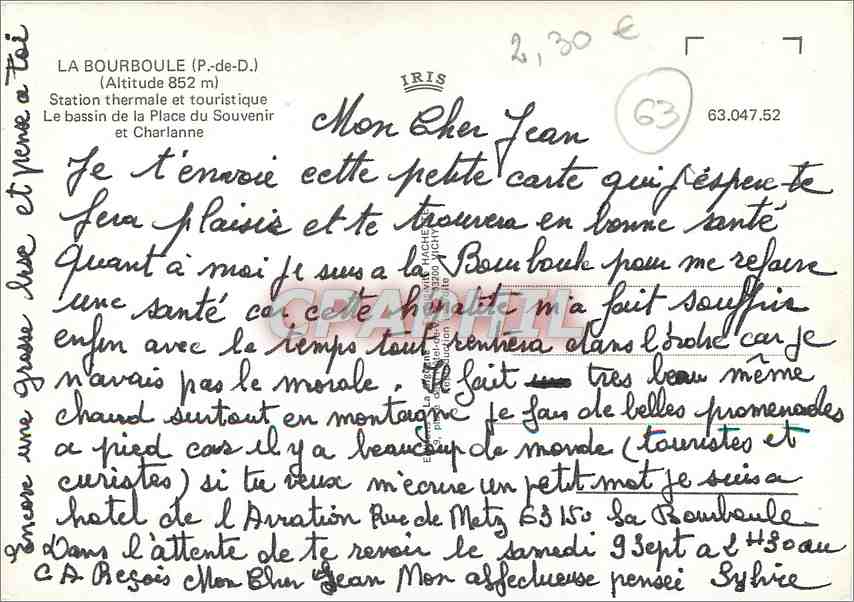 LA BOURBOULE (P.-de-D.)
(Altitude 852 m)
Station thermale et touristique
Le bassin de la Place du Souvenir
et Charlanne
IRIS
2,30 €
63
63.047.52
Mon Cher Jean
Je t'envoie cette petite carte qui j'espere te
fera plaisir et te trouvera en bonne santé
quant à moi je suis a la Bourboule pour me refaire
une santé car cette hepatite m'a fait souffrir
enfin avec le temps tout rentrera dans l'ordre car je
n'avais pas le morale. Il fait tres beau même
chaud surtout en montagne je fais de belles promenades
a pied car il y a beaucoup de monde (touristes et
curistes) si tu veux m'ecrire un petit mot je suis a
hotel de l'Aviation Rue de Metz 63150 La Bourboule
Dans l'attente de te revoir le samedi 9 Sept a 2H30 au
C A Reçois Mon Cher Jean Mon affectueuse pensei Sylvie
Encore une grosse bise et pense a toi
CPARPHIL